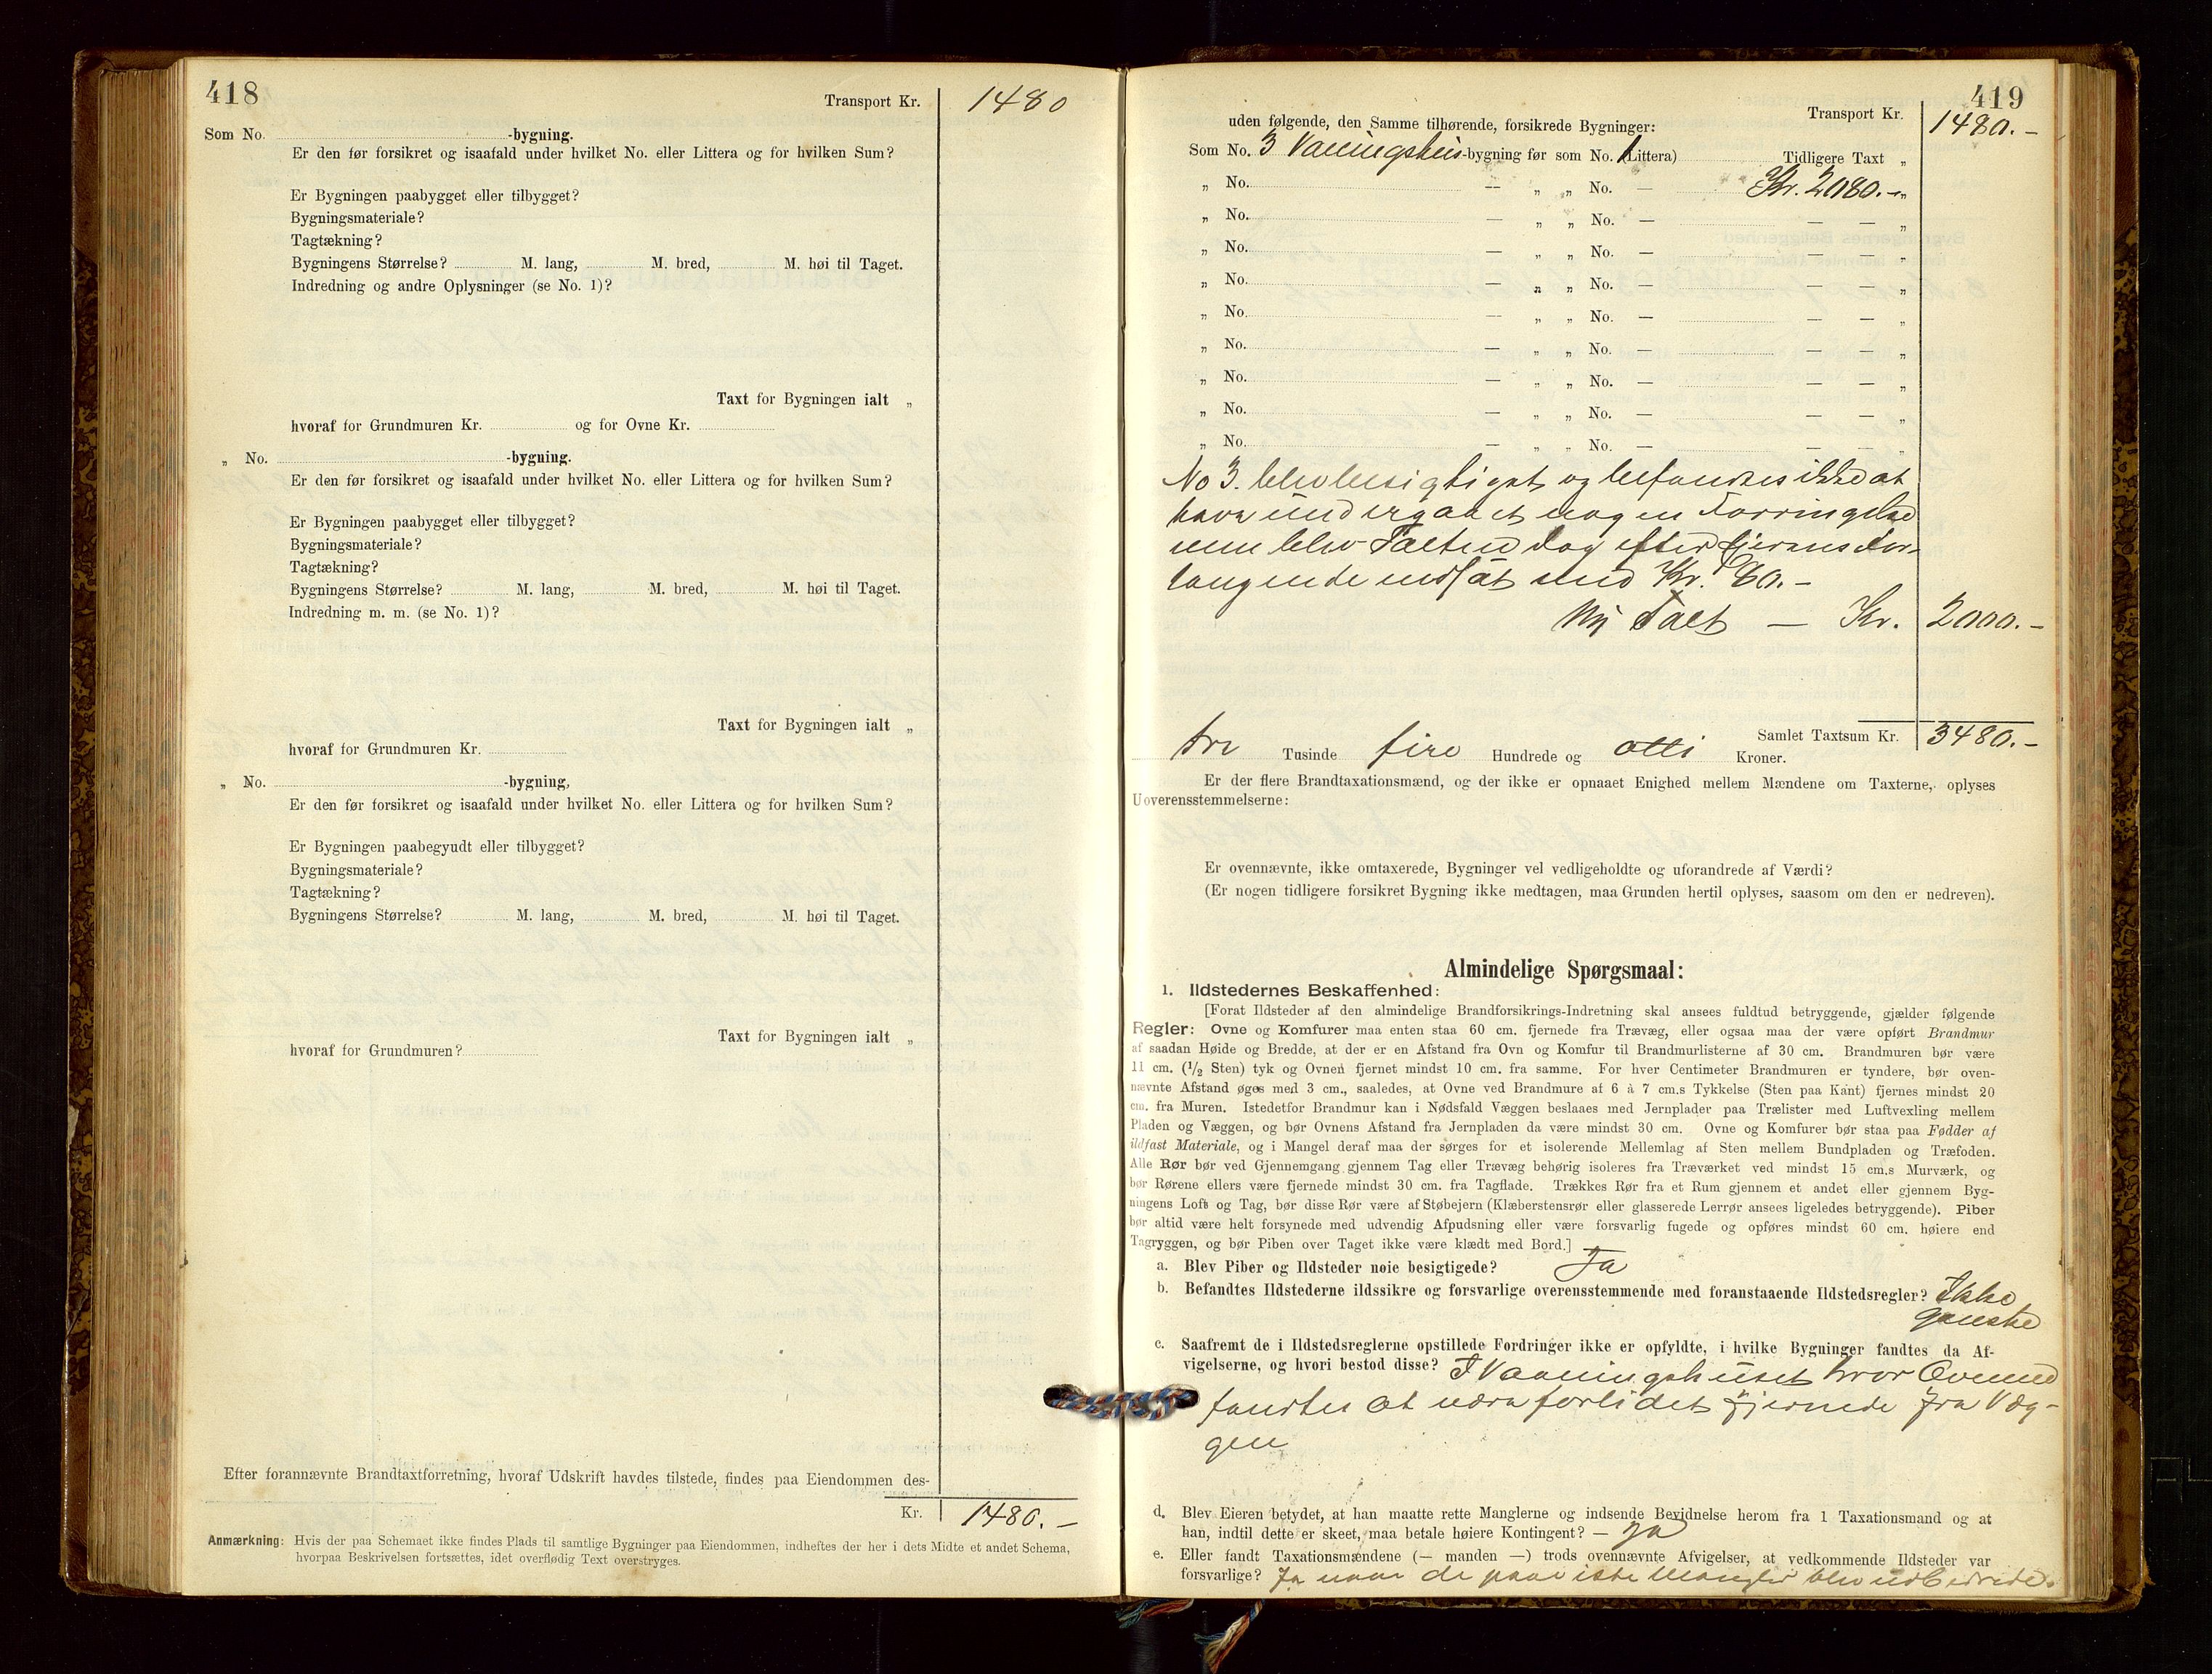 418
Transport Kr. 1480
Som No. -bygning.
Er den før forsikret og isaafald under hvilket No. eller Littera og for hvilken Sum?
Er Bygningen paabygget eller tilbygget?
Bygningsmateriale?
Tagtækning?
Bygningens Størrelse? M. lang, M. bred, M. høi til Taget.
Indredning og andre Oplysninger (se No. 1)?
Taxt for Bygningen ialt „
hvoraf for Grundmuren Kr. og for Ovne Kr.
„ No. -bygning.
Er den før forsikret og isaafald under hvilket No. eller Littera og for hvilken Sum?
Er Bygningen paabygget eller tilbygget?
Bygningsmateriale?
Tagtækning?
Bygningens Størrelse? M. lang, M. bred, M. høi til Taget.
Indredning m. m. (se No. 1)?
Taxt for Bygningen ialt „
hvoraf for Grundmuren Kr.
„ No. -bygning,
Er den før forsikret og isaafald under hvilket No. eller Littera og for hvilken Sum?
Er Bygningen paabegyudt eller tilbygget?
Bygningsmateriale?
Tagtækning?
Bygningens Størrelse? M. lang, M. bred, M. høi til Taget.
Taxt for Bygningen ialt „
hvoraf for Grundmuren?
Efter forannævnte Brandtaxtforretning, hvoraf Udskrift havdes tilstede, findes paa Eiendommen des-
Kr. 1480.-
Anmærkning: Hvis der paa Schemaet ikke findes Plads til samtlige Bygninger paa Eiendommen, indheftes der her i dets Midte et andet Schema,
hvorpaa Beskrivelsen fortsættes, idet overflødig Text overstryges.
419
Transport Kr. 1480.-
uden følgende, den Samme tilhørende, forsikrede Bygninger:
Som No. 3 Vaaningshus-bygning før som No. 1 (Littera) Tidligere Taxt „
„ No. — „ „ No. — Kr. 2080.- „
„ No. — „ „ No. — — — „
„ No. — „ „ No. — — — „
„ No. — „ „ No. — — — „
„ No. — „ „ No. — — — „
„ No. — „ „ No. — — — „
„ No. — „ „ No. — — — „
„ No. — „ „ No. — — — „
„ No. — „ „ No. — — — „
No 3. blev besigtiget og befandtes ikke at
have undergaaet nogen Forringelse
men blev Taxten dog efter Eierens For-
langende nedsat med Kr. 80.-
Ny Taxt — Kr. 2000.-
Samlet Taxtsum Kr. 3480.-
tre Tusinde fire Hundrede og otti Kroner.
Er der flere Brandtaxationsmænd, og der ikke er opnaaet Enighed mellem Mændene om Taxterne, oplyses
Uoverensstemmelserne:
Er ovennævnte, ikke omtaxerede, Bygninger vel vedligeholdte og uforandrede af Værdi?
(Er nogen tidligere forsikret Bygning ikke medtagen, maa Grunden hertil oplyses, saasom om den er nedreven).
Almindelige Spørgsmaal:
1. Ildstedernes Beskaffenhed:
[Forat Ildsteder af den almindelige Brandforsikrings-Indretning skal ansees fuldtud betryggende, gjælder følgende
Regler: Ovne og Komfurer maa enten staa 60 cm. fjernede fra Trævæg, eller ogsaa maa der være opført Brandmur
af saadan Høide og Bredde, at der er en Afstand fra Ovn og Komfur til Brandmurlisterne af 30 cm. Brandmuren bør være
11 cm. (1/2 Sten) tyk og Ovnen fjernet mindst 10 cm. fra samme. For hver Centimeter Brandmuren er tyndere, bør oven-
nævnte Afstand øges med 3 cm., saaledes, at Ovne ved Brandmure af 6 à 7 cm.s Tykkelse (Sten paa Kant) fjernes mindst 20
cm. fra Muren. Istedetfor Brandmur kan i Nødsfald Væggen beslaaes med Jernplader paa Trælister med Luftvexling mellem
Pladen og Væggen, og bør Ovnens Afstand fra Jernpladen da være mindst 30 cm. Ovne og Komfurer bør staa paa Fødder af
ildfast Materiale, og i Mangel deraf maa der sørges for et isolerende Mellemlag af Sten mellem Bundpladen og Træfoden.
Alle Rør bør ved Gjennemgang gjennem Tag eller Trævæg behørig isoleres fra Træværket ved mindst 15 cm.s Murværk, og
bør Rørene ellers være fjernede mindst 30 cm. fra Tagflade. Trækkes Rør fra et Rum gjennem et andet eller gjennem Byg-
ningens Loft og Tag, bør disse Rør være af Støbejern (Klæberstensrør eller glasserede Lerrør ansees ligeledes betryggende). Piber
bør altid være helt forsynede med udvendig Afpudsning eller være forsvarlig fugede og opføres mindst 60 cm. høiere end
Tagryggen, og bør Piben over Taget ikke være klædt med Bord.]
a. Blev Piber og Ildsteder nøie besigtigede? Ja
b. Befandtes Ildstederne ildssikre og forsvarlige overensstemmende med foranstaaende Ildstedsregler? Ikke
ganske
c. Saafremt de i Ildstedsreglerne opstillede Fordringer ikke er opfyldte, i hvilke Bygninger fandtes da Af-
vigelserne, og hvori bestod disse? I Vaaningshuset hvor Ovnene
fandtes at være forlidet fjernede fra Væg-
gen
d. Blev Eieren betydet, at han maatte rette Manglerne og indsende Bevidnelse herom fra 1 Taxationsmand og at
han, indtil dette er skeet, maa betale høiere Kontingent? — Ja
e. Eller fandt Taxationsmændene (— manden —) trods ovennævnte Afvigelser, at vedkommende Ildsteder var
forsvarlige? Ja naar de paaviste Mangler blev udbedrede.